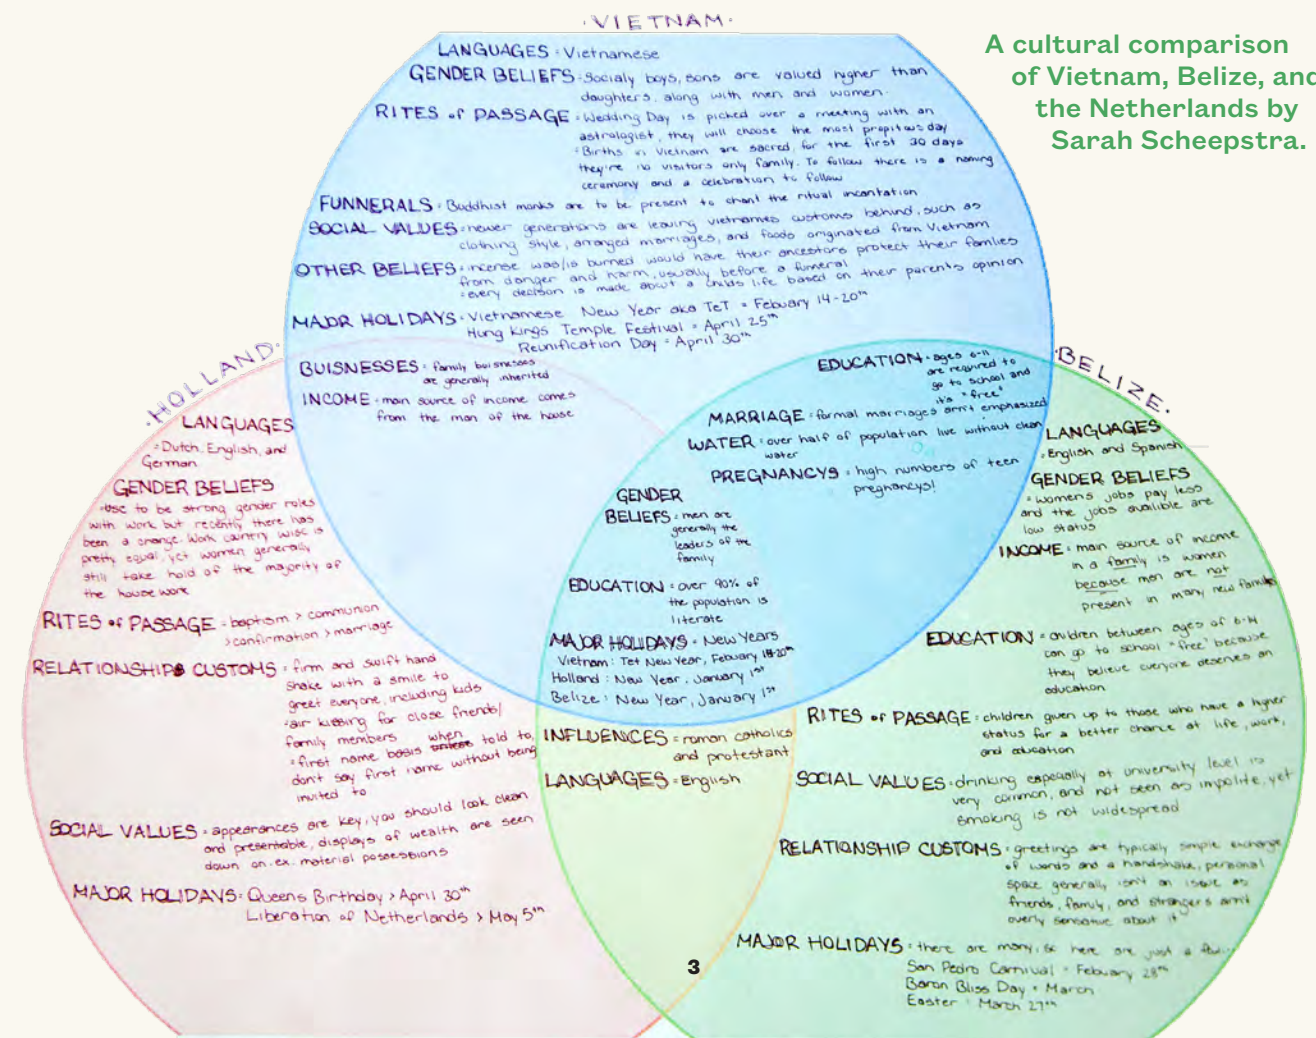 ·VIETNAM·
A cultural comparison
of Vietnam, Belize, and
the Netherlands by
Sarah Scheepstra.
LANGUAGES = Vietnamese
GENDER BELIEFS = Socialy boys, sons are valued higher than
daughters, along with men and women.
RITES of PASSAGE = Wedding Day is picked over a meeting with an
astrologist, they will choose the most propitous day
= Births in Vietnam are sacred, for the first 30 days
they're no visitors only family. To follow there is a naming
ceremony and a celebration to follow
FUNNERALS = Buddhist monks are to be present to chant the ritual incantation
SOCIAL VALUES = newer generations are leaving vietnames customs behind, such as
clothing style, arranged marriages, and foods originated from Vietnam
OTHER BELIEFS = incense was/is burned would have their ancestors protect their famlies
from danger and harm, usually before a funeral
= every decision is made about a childs life based on their parents opinion
MAJOR HOLIDAYS = Vietnamese New Year aka TeT = Febuary 14-20th
Hung Kings Temple Festival = April 25th
Reunification Day = April 30th
·HOLLAND·
BUISNESSES = family buisnesses
are generally inherited
INCOME = main source of income comes
from the man of the house
EDUCATION = ages 6-11
are required to
go to school and
it's "free"
MARRIAGE = formal marriages arn't emphasized
WATER = over half of population live without clean
water
PREGNANCYS = high numbers of teen
pregnancys!
·BELIZE·
LANGUAGES
= Dutch, English, and
German
GENDER BELIEFS
= use to be strong gender roles
with work but recently there has
been a change. Work country wise is
pretty equal, yet women generally
still take hold of the majority of
the house work
RITES of PASSAGE = baptism > communion
> confirmation > marriage
RELATIONSHIPS CUSTOMS = firm and swift hand
shake with a smile to
greet everyone, including kids
= air kissing for close friends/
family members
= first name basis when told to,
don't say first name without being
invited to
SOCIAL VALUES = appearances are key, you should look clean
and presentable, displays of wealth are seen
down on. ex. material possessions
MAJOR HOLIDAYS = Queens Birthday > April 30th
Liberation of Netherlands > May 5th
GENDER
BELIEFS = men are
generally the
leaders of the
family
EDUCATION = over 90% of
the population is
literate
MAJOR HOLIDAYS = New Years
Vietnam: Tet New Year, Febuary 14-20th
Holland: New Year, January 1st
Belize: New Year, January 1st
INFLUENCES = roman catholics
and protestant
LANGUAGES = English
LANGUAGES
= English and Spanish
GENDER BELIEFS
= womens jobs pay less
and the jobs availible are
low status
INCOME = main source of income
in a family is women
because men are not
present in many new families
EDUCATION = children between ages of 6-14
can go to school "free" because
they believe everyone deserves an
education
RITES of PASSAGE = children given up to those who have a higher
status for a better chance at life, work,
and education
SOCIAL VALUES = drinking especially at university level is
very common, and not seen as impolite, yet
smoking is not widespread
RELATIONSHIP CUSTOMS = greetings are typically simple exchange
of words and a handshake, personal
space generally isn't an issue as
friends, family, and strangers arn't
overly sensative about it
MAJOR HOLIDAYS = there are many, so here are just a few...
San Pedro Carnival = Febuary 28th
Baron Bliss Day = March
Easter = March 27th
3